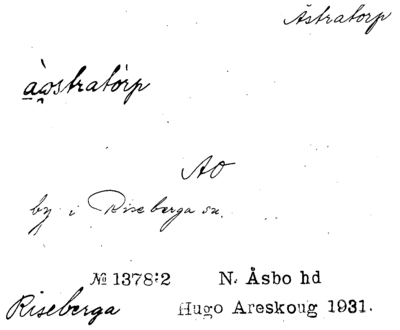 Åstratorp
a̱ꞷ̀stratǻrp
AO
by i Riseberga sn.
№ 1378:2 N. Åsbo hd
Riseberga Hugo Areskoug 1931.